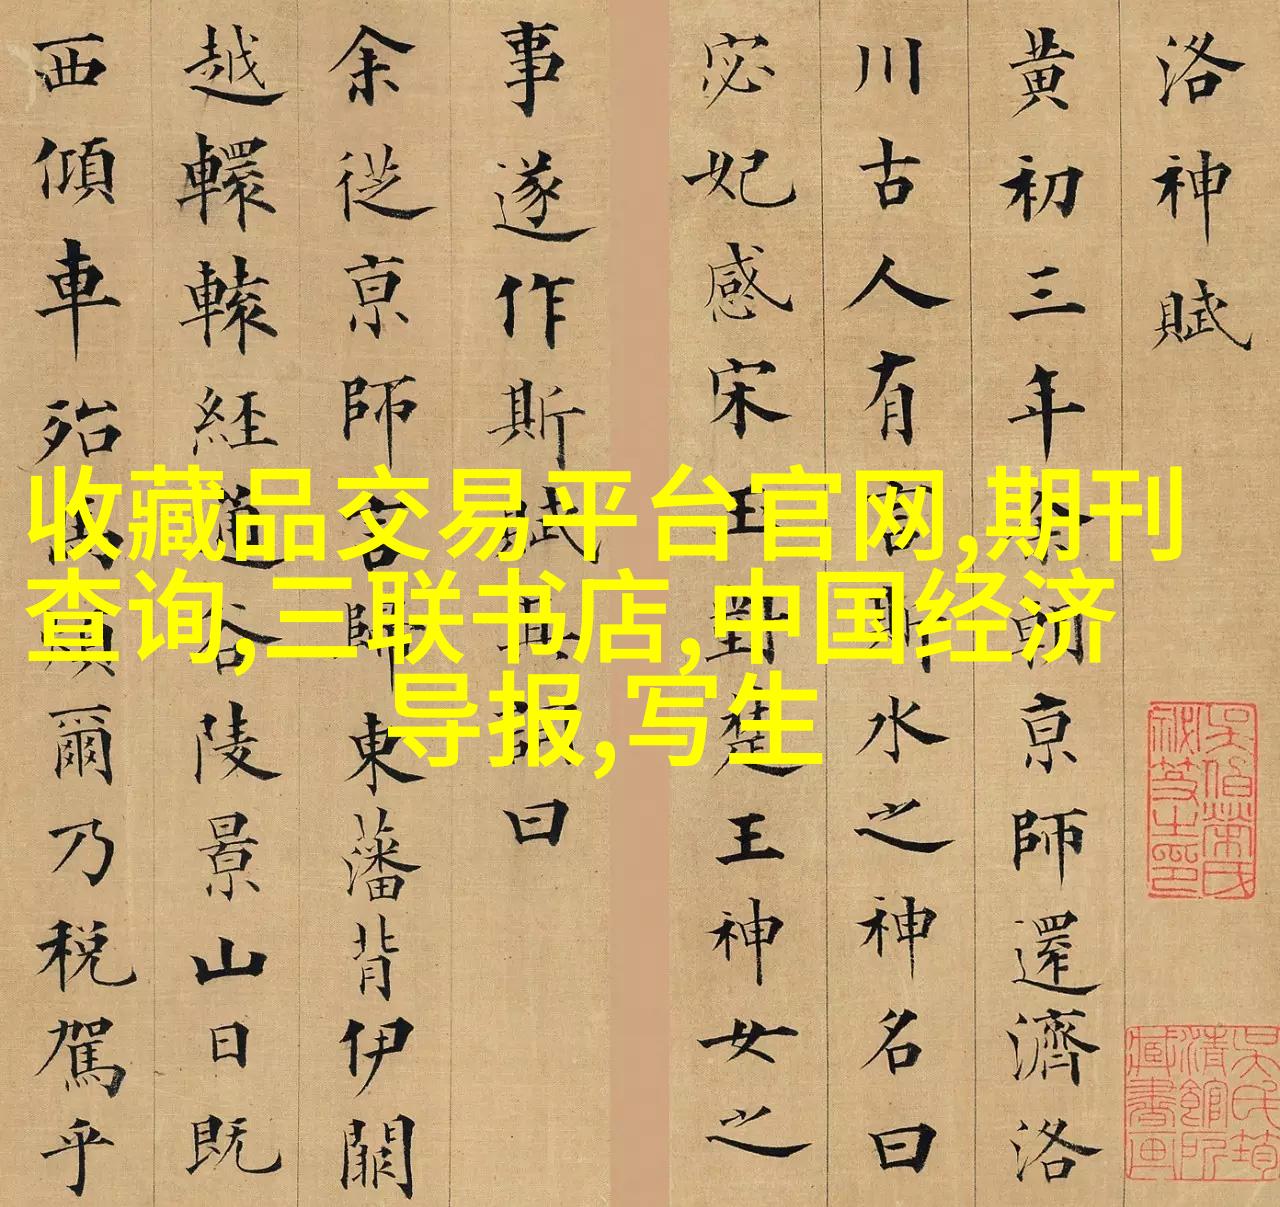 洛神賦
黄初三年余朝京師還濟洛
川古人有言斯水之神名曰
宓妃感宋玉對楚王神女之
事遂作斯賦其詞曰
余從京師言歸東藩背伊闕
越轘轅經通谷陵景山日既
西傾車殆馬煩爾乃税駕乎
收藏品交易平台官网,期刊
查询,三联书店,中国经济
导报,写生
吳氏筠
清館所
藏書画